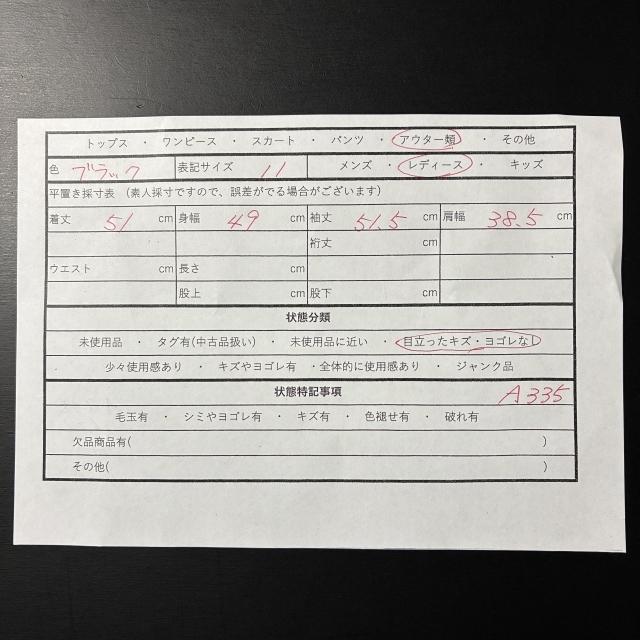 トップス ・ ワンピース ・ スカート ・ パンツ ・ アウター類 ・ その他
色 ブラック 表記サイズ 11 メンズ ・ レディース ・ キッズ
平置き採寸表 (素人採寸ですので、誤差がでる場合がございます)
着丈 51 cm 身幅 49 cm 袖丈 51.5 cm 肩幅 38.5 cm
裄丈 cm
ウエスト cm 長さ cm cm
股上 cm 股下 cm
状態分類
未使用品 ・ タグ有(中古品扱い) ・ 未使用品に近い ・ 目立ったキズ・ヨゴレなし
少々使用感あり ・ キズやヨゴレ有 ・全体的に使用感あり ・ ジャンク品
状態特記事項 A335
毛玉有 ・ シミやヨゴレ有 ・ キズ有 ・ 色褪せ有 ・ 破れ有
欠品商品有( )
その他( )